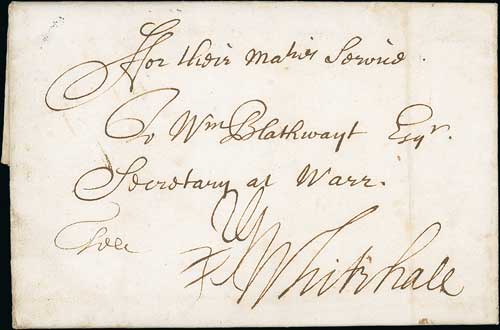 ffor their Maties Service
To Wm Blathwayt Esqr.
Secretary at Warr.
Whitehall